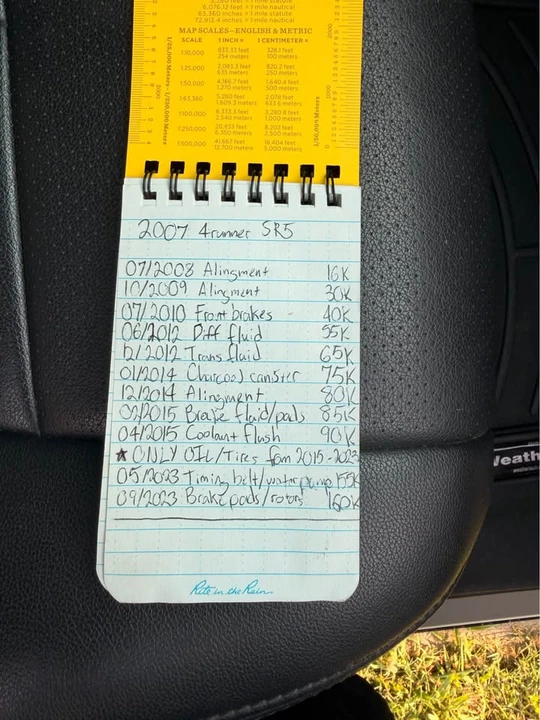 6,076.12 feet = 1 mile nautical
63,360 inches = 1 mile statute
72,913.4 inches = 1 mile nautical
MAP SCALES—ENGLISH & METRIC
SCALE 1 INCH = 1 CENTIMETER =
1:10,000 833.33 feet 328.1 feet
254 meters 100 meters
1:25,000 2,083.3 feet 820.2 feet
635 meters 250 meters
1:50,000 4,166.7 feet 1,640.4 feet
1,270 meters 500 meters
1:63,360 5,280 feet 2,078 feet
1,609.3 meters 633.6 meters
1:100,000 8,333.3 feet 3,280.8 feet
2,540 meters 1,000 meters
1:250,000 20,833 feet 8,202 feet
6,350 meters 2,500 meters
1:500,000 41,667 feet 16,404 feet
12,700 meters 5,000 meters
2007 4runner SR5
07/2008 Alingment 16K
10/2009 Alingment 30K
07/2010 Front brakes 40K
06/2012 Diff fluid 55K
12/2012 Trans fluid 65K
01/2014 Charcoal canister 75K
12/2014 Alingment 80K
02/2015 Brake fluid/pads 85K
04/2015 Coolant flush 90K
★ ONLY OIL/Tires from 2015-2023
05/2023 Timing belt/water pump 155K
09/2023 Brake pads/rotors 160K
Rite in the Rain